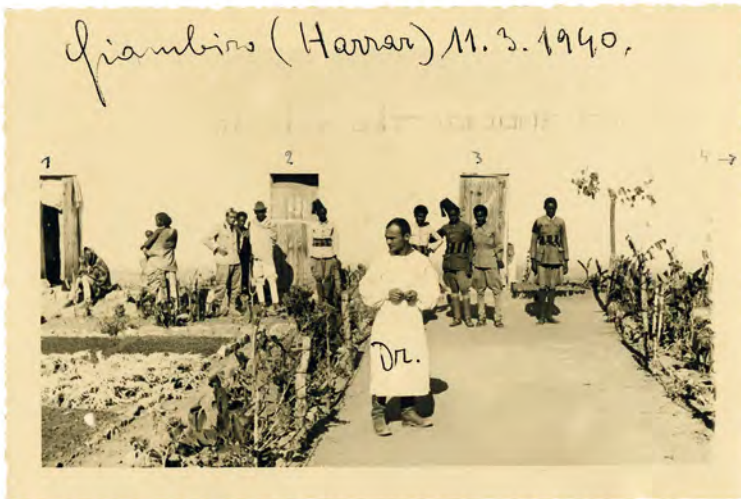 Giambiro (Harrar) 11. 3. 1940.
1 2 3 4 →
Dr.